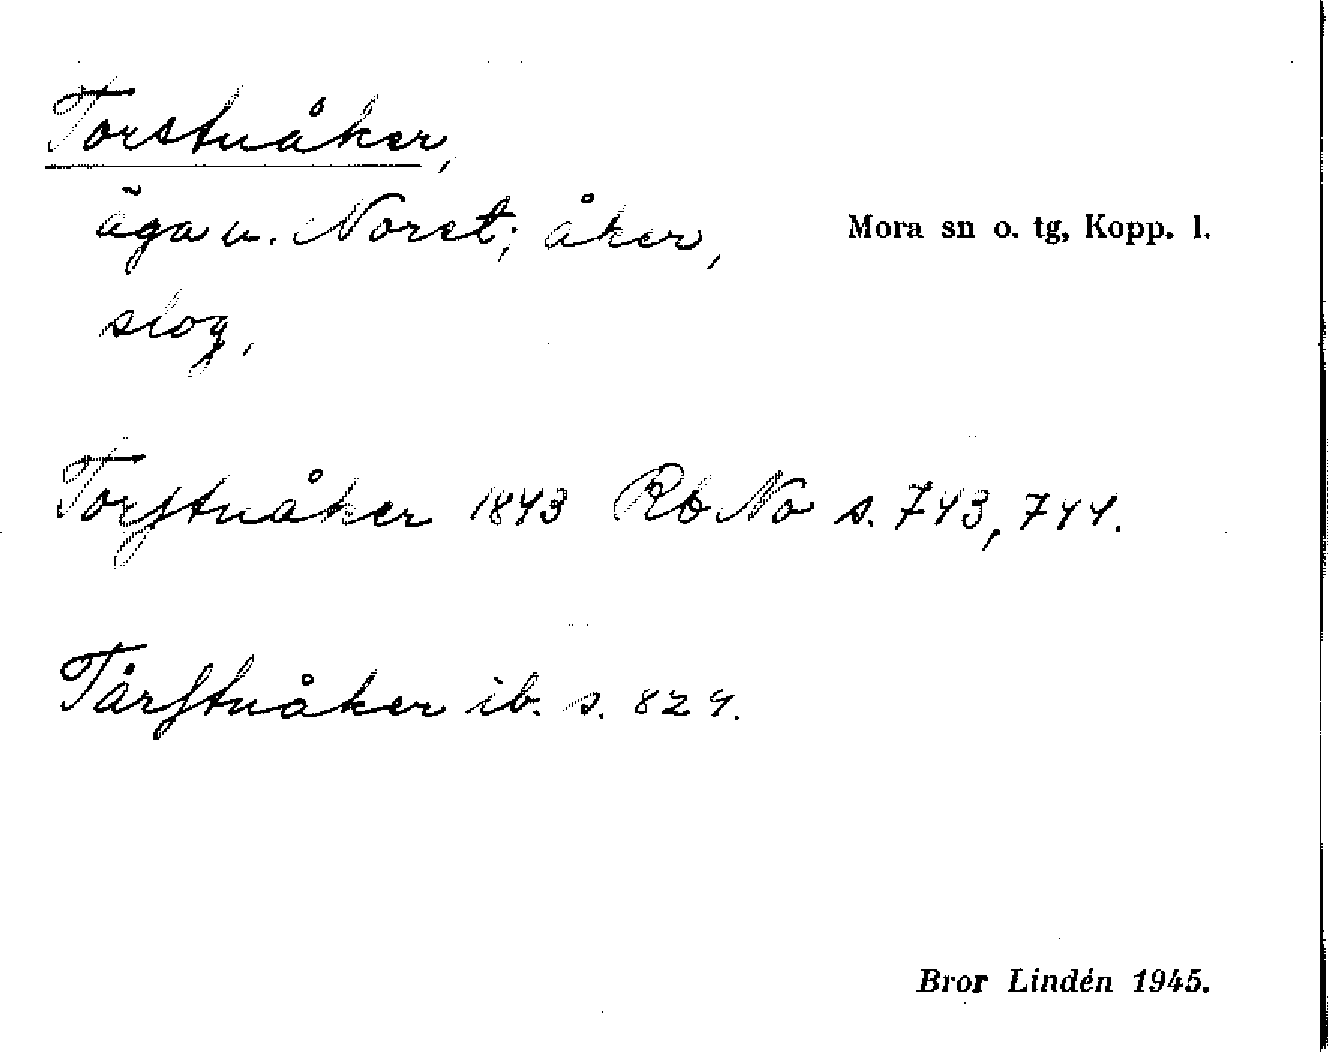 Torstnåker,
äga u. Noret; åker,
Mora sn o. tg, Kopp. l.
slog,
Torstnåker 1843 Rb No s. 743, 744.
Tårstnåker ib. s. 824.
Bror Lindén 1945.